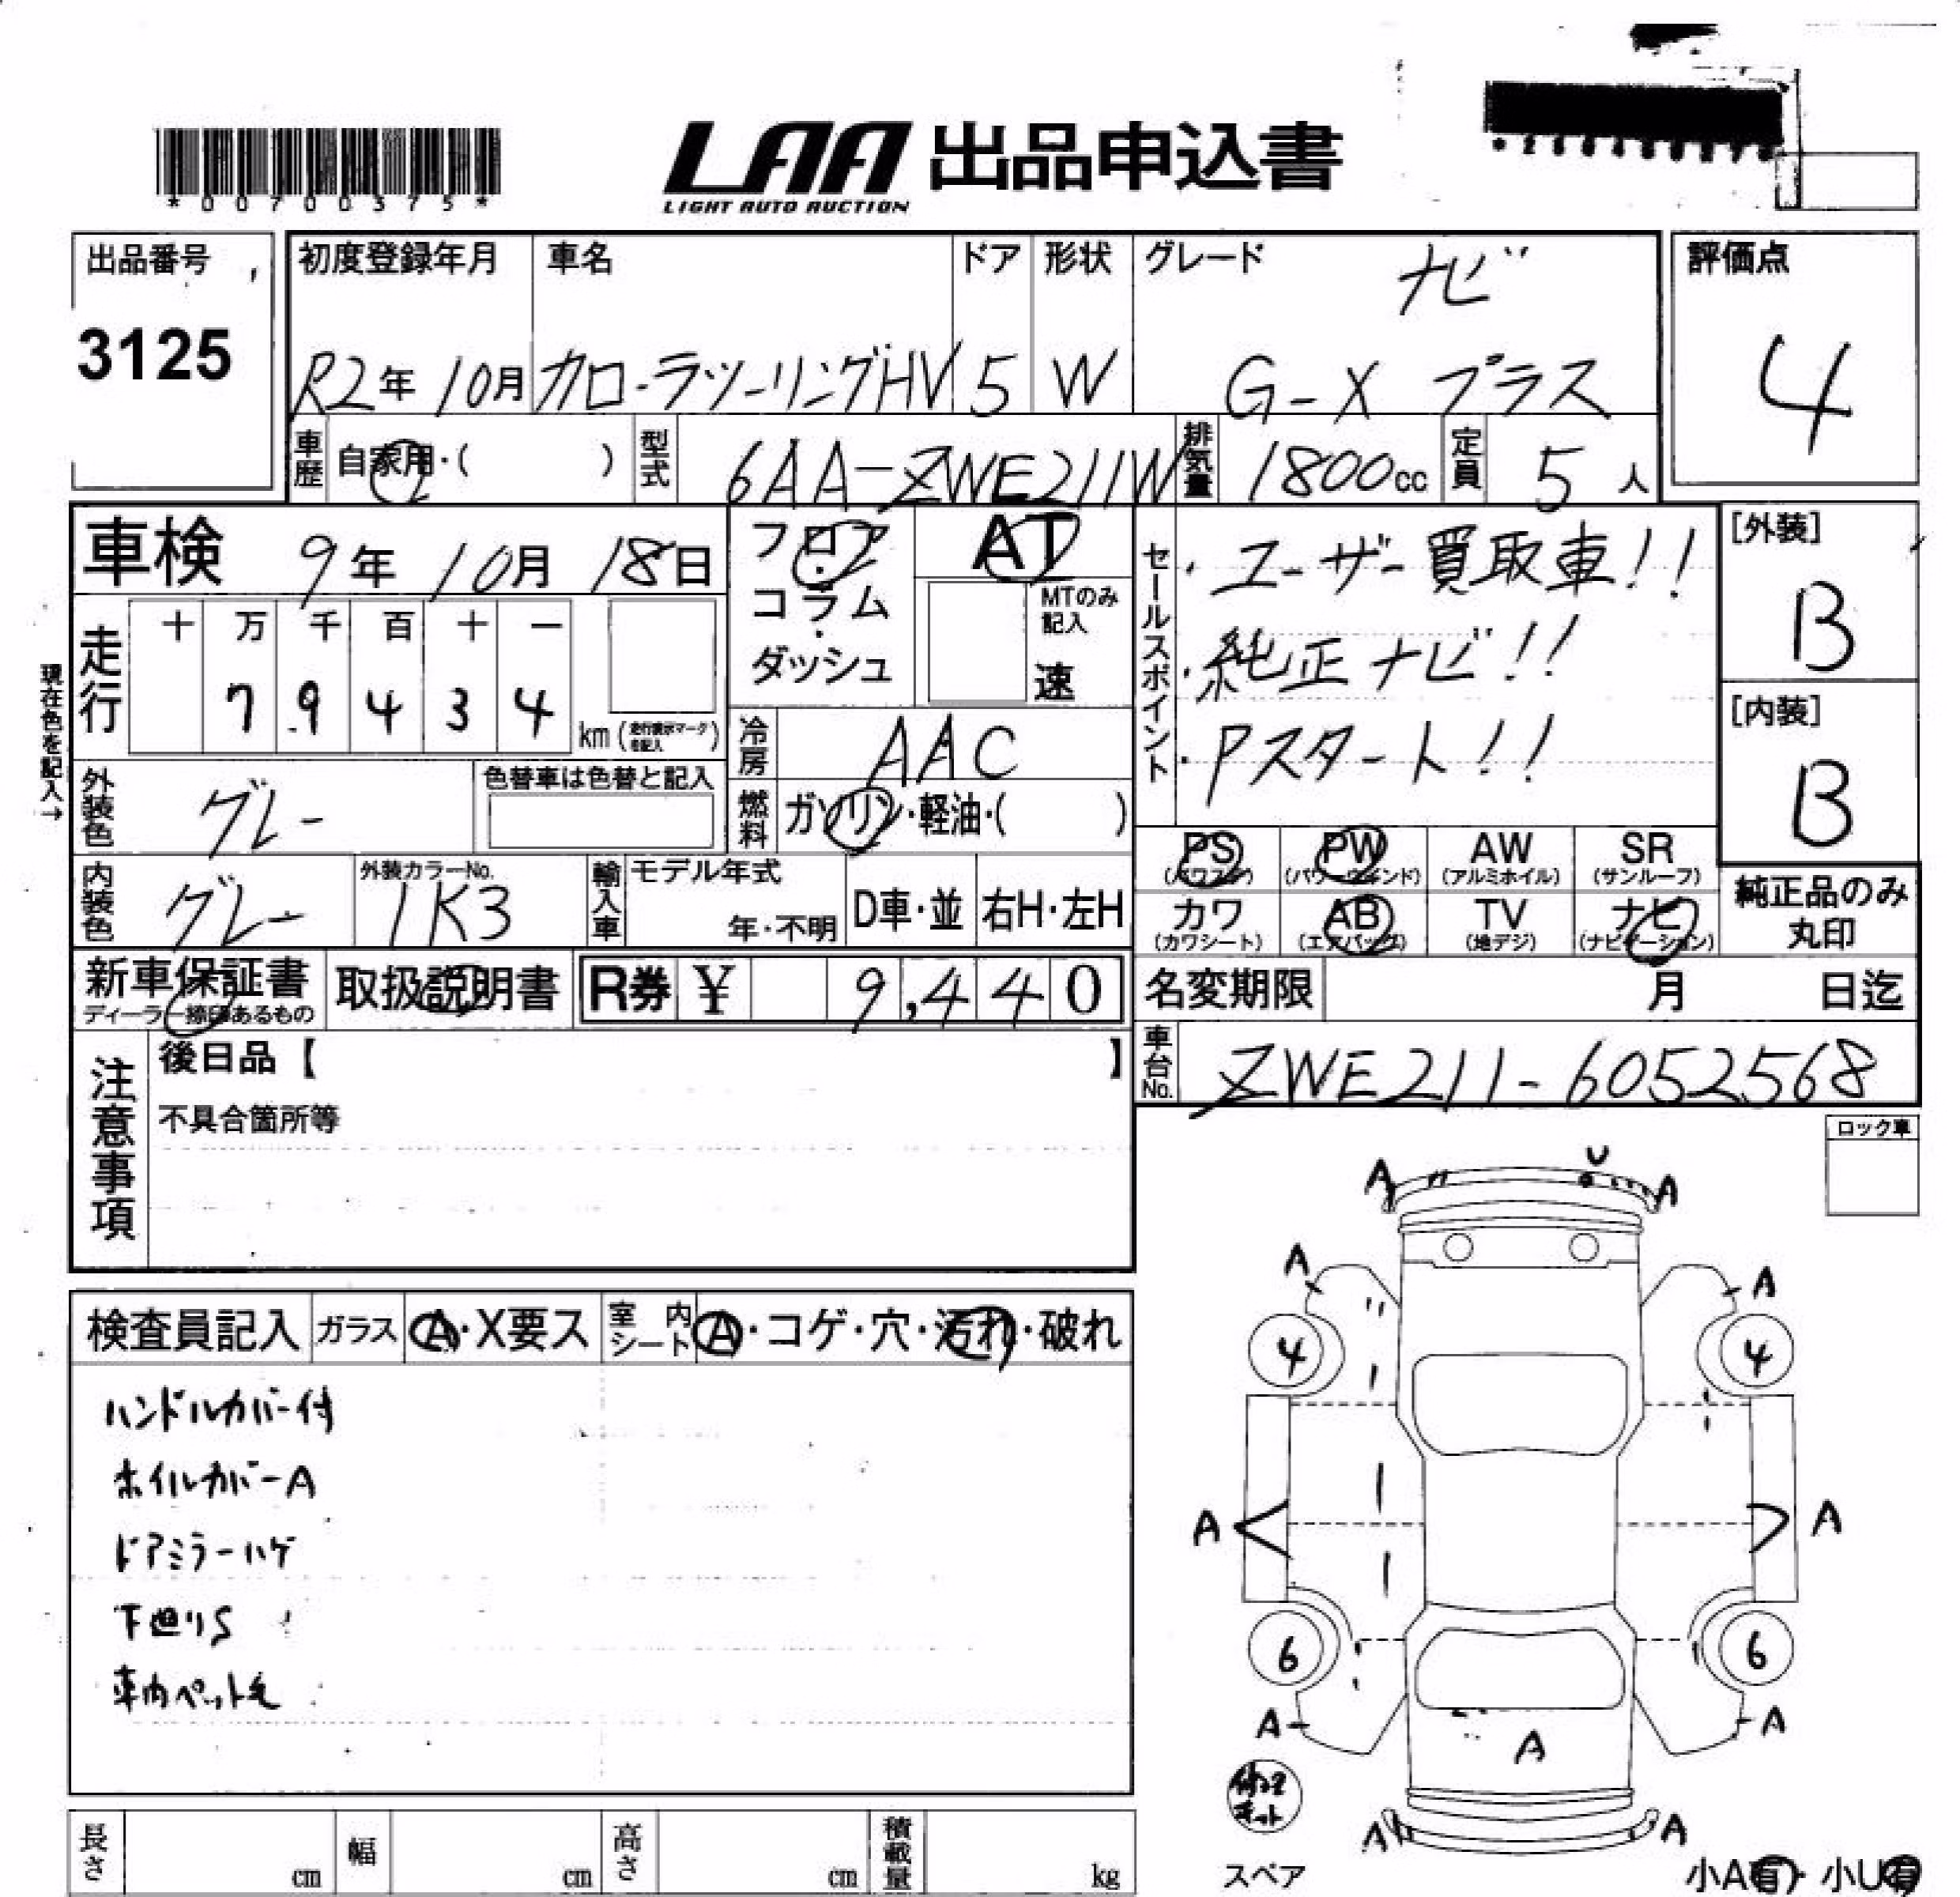 *00700375*
LAA 出品申込書
LIGHT AUTO AUCTION
出品番号
3125
初度登録年月
R2年 10月
車名
カローラツーリングHV
ドア
5
形状
W
グレード
ナビ
G-X プラス
評価点
4
車歴
自家用・( )
型式
6AA-ZWE211W
排気量
1800cc
定員
5人
車検 9年 10月 18日
現在色を記入→
走行
十 万 千 百 十 一
7 9 4 3 4
km(走行表示マークを記入)
フロア
・
コラム
・
ダッシュ
AT
MTのみ記入
速
冷房
AAC
燃料
ガソリン・軽油・( )
セールスポイント
・ユーザー買取車!!
・純正ナビ!!
・Pスタート!!
[外装]
B
[内装]
B
外装色
グレー
色替車は色替と記入
内装色
グレー
外装カラーNo.
1K3
輸入車
モデル年式
年・不明
D車・並
右H・左H
PS
(パワステ)
PW
(パワーウインド)
AW
(アルミホイル)
SR
(サンルーフ)
カワ
(カワシート)
AB
(エアバッグ)
TV
(地デジ)
ナビ
(ナビゲーション)
純正品のみ
丸印
新車保証書
ディーラー捺印あるもの
取扱説明書
R券 ¥ 9,440
名変期限 月 日迄
車台No.
ZWE211-6052568
注意事項
後日品【 】
不具合箇所等
ロック車
検査員記入
ガラス
A・X要ス
室内シート
A・コゲ・穴・汚れ・破れ
ハンドルカバー付
ホイルカバーA
ドアミラーハゲ
下廻りS
車内ペット毛
A U A
A A
4 4
A A
6 6
A A
A
修理キット
A A
スペア
小A有・小U有
長さ cm
幅 cm
高さ cm
積載量 kg